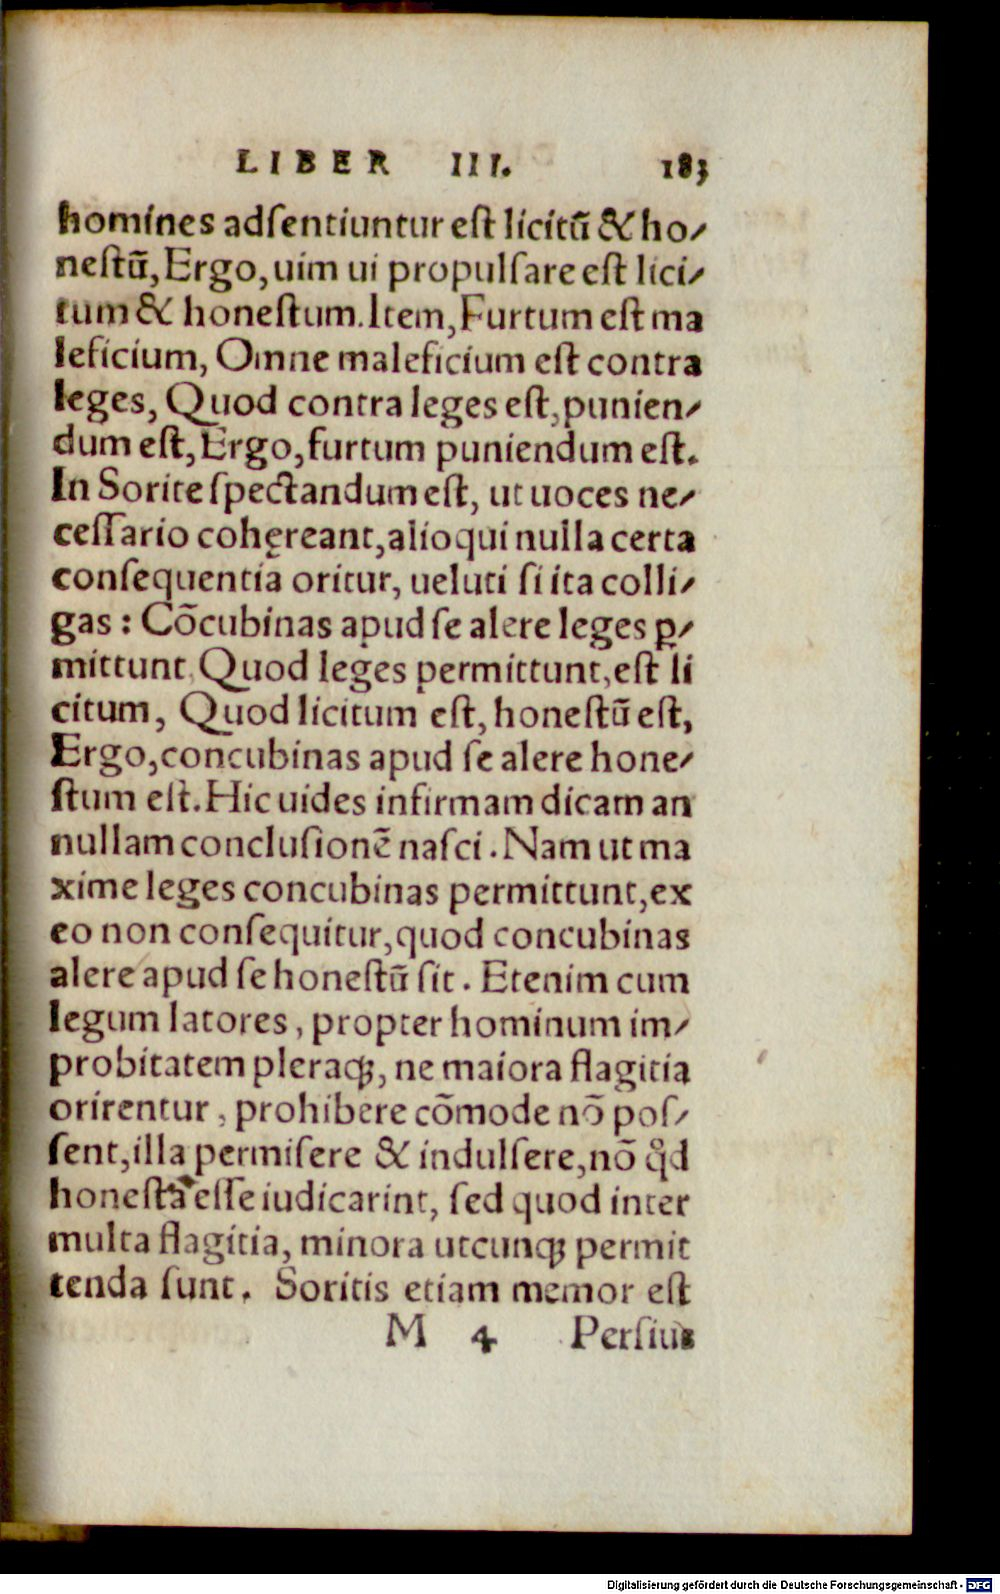 LIBER III. 183
homines adſentiuntur eſt licitū & ho⸗
neſtū, Ergo, uim ui propulſare eſt lici⸗
tum & honeſtum. Item, Furtum eſt ma
leficium, Omne maleficium eſt contra
leges, Quod contra leges eſt, punien⸗
dum eſt, Ergo, furtum puniendum eſt.
In Sorite ſpectandum eſt, ut uoces ne⸗
ceſſario cohęreant, alioqui nulla certa
conſequentia oritur, ueluti ſi ita colli⸗
gas: Cōcubinas apud ſe alere leges ꝑ⸗
mittunt, Quod leges permittunt, eſt li
citum, Quod licitum eſt, honeſtū eſt,
Ergo, concubinas apud ſe alere hone⸗
ſtum eſt. Hic uides infirmam dicam an
nullam concluſionē naſci. Nam ut ma
xime leges concubinas permittunt, ex
eo non conſequitur, quod concubinas
alere apud ſe honeſtū ſit. Etenim cum
legum latores, propter hominum im⸗
probitatem pleraq;, ne maiora flagitia
orirentur, prohibere cōmode nō poſ⸗
ſent, illa permiſere & indulſere, nō qd̊
honeſta eſſe iudicarint, ſed quod inter
multa flagitia, minora utcunq; permit
tenda ſunt. Soritis etiam memor eſt
M 4 Perſius
Digitalisierung gefördert durch die Deutsche Forschungsgemeinschaft - DFG